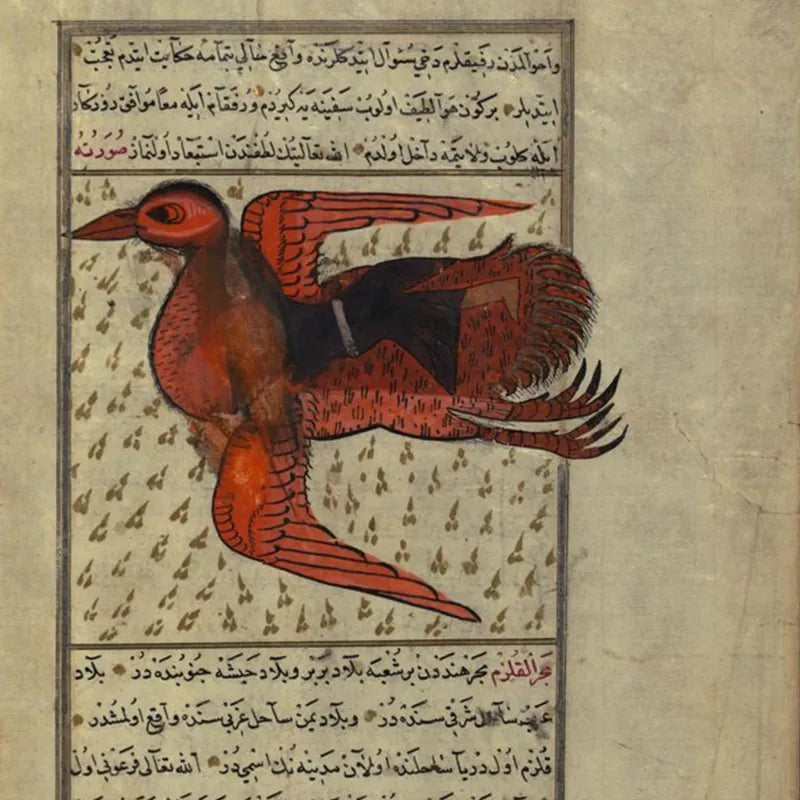 واحوالمدن رفيقلرم دخى سئوال ايتدكلرنده واقع حالى بتمامه حكايت ايتدم تعجب
ايتديلر بركون هوا لطيف اولوب سفينه يه كيردم ورفقام ايله معا موافق روزكار
ايله كلوب ولايتمه داخل اولدم الله تعالينك لطفندن استبعاد اولنماز صورته
بحر القلزم بحر هنددن بر شعبه بلاد بربر وبلاد حبشه جنوبنده در بلاد
عرب ساحل شرقى سنده در وبلاد يمن ساحل غربى سنده واقع اولمشدر
قلزم اول دريا ساحلنده اولان مدينه نك اسمى در الله تعالى فرعونى اول